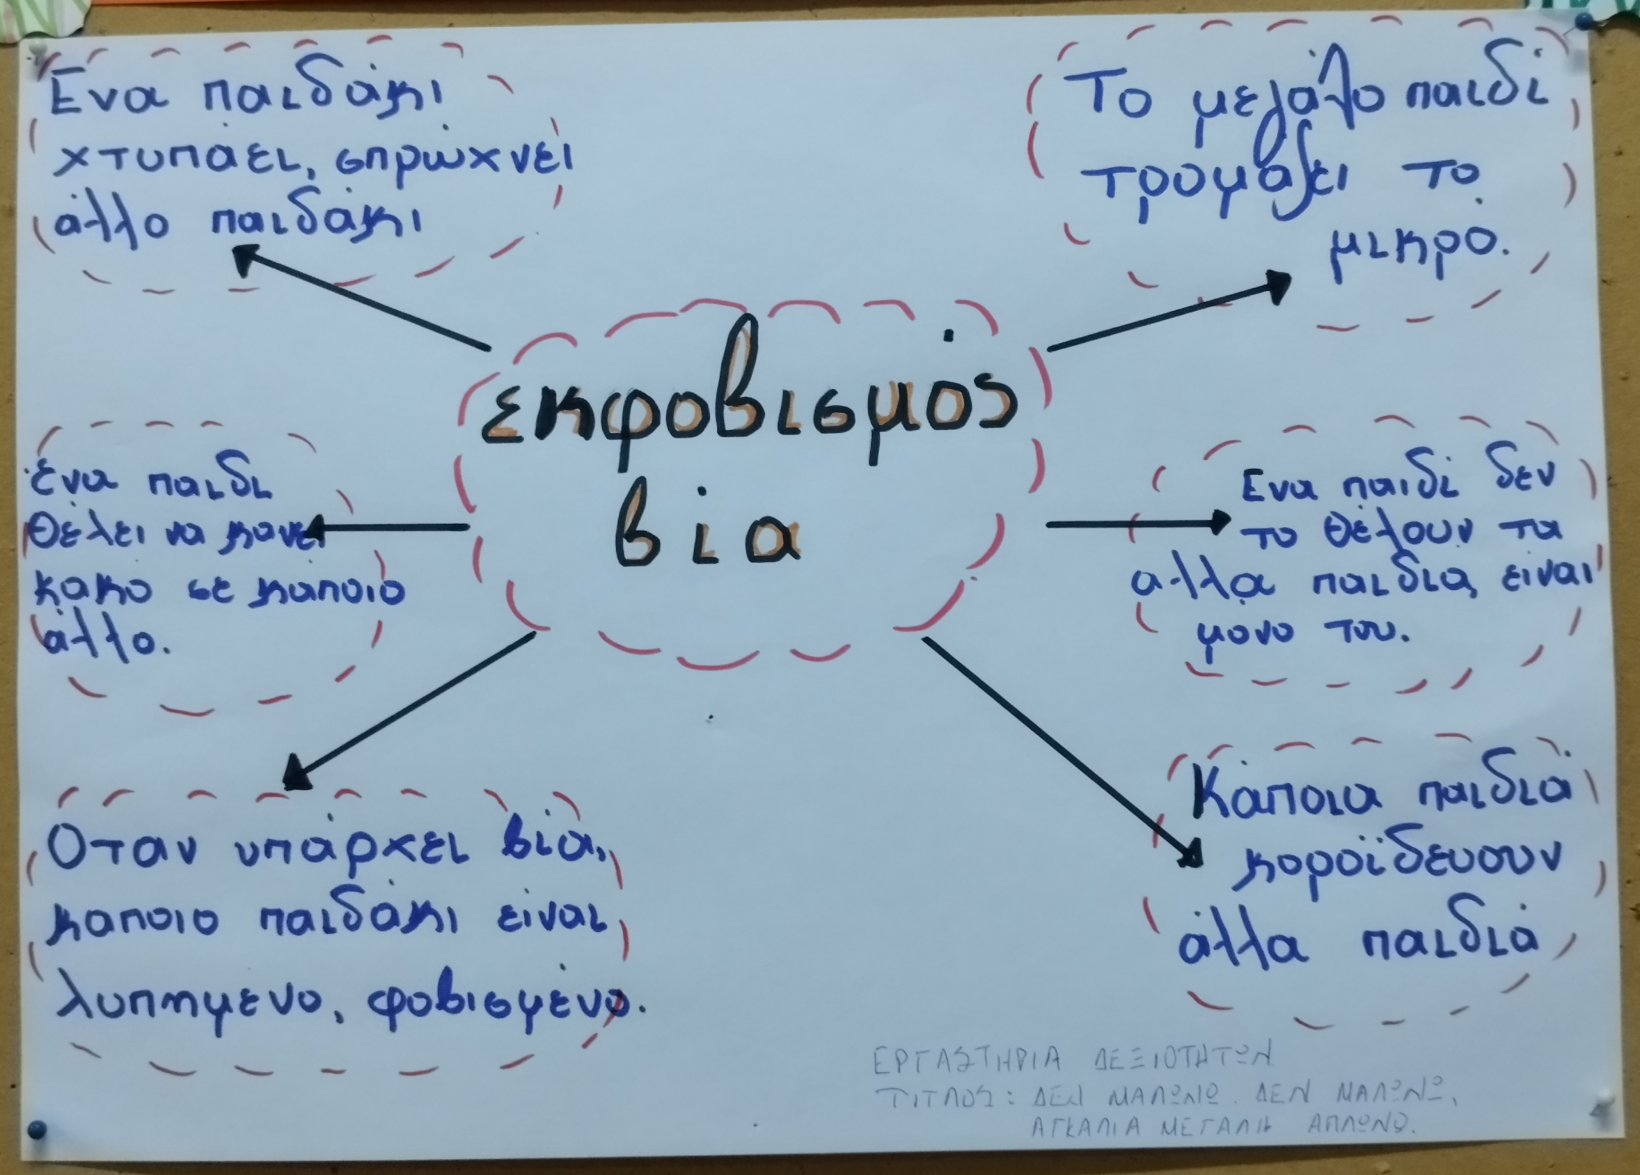 Ένα παιδάκι
χτυπάει, σπρώχνει
άλλο παιδάκι
Το μεγάλο παιδί
τρομάζει το
μικρό.
εκφοβισμός
βία
Ένα παιδί
θέλει να κάνει
κακό σε κάποιο
άλλο.
Ένα παιδί δεν
το θέλουν τα
άλλα παιδιά, είναι
μόνο του.
Όταν υπάρχει βία,
κάποιο παιδάκι είναι
λυπημένο, φοβισμένο.
Κάποια παιδιά
κοροϊδεύουν
άλλα παιδιά
ΕΡΓΑΣΤΗΡΙΑ ΔΕΞΙΟΤΗΤΩΝ
ΤΙΤΛΟΣ: ΔΕΝ ΜΑΛΩΝΩ. ΔΕΝ ΜΑΛΩΝΩ,
ΑΓΚΑΛΙΑ ΜΕΓΑΛΗ ΑΠΛΩΝΩ.